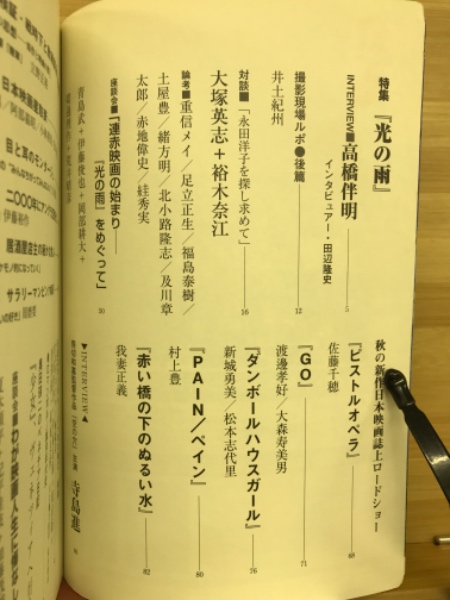 特集『光の雨』
INTERVIEW■高橋伴明
インタビュアー・田辺隆史
5
撮影現場ルポ●後篇
井土紀州
12
対談■「永田洋子を探し求めて」
大塚英志+裕木奈江
16
論考■重信メイ/足立正生/福島泰樹/
土屋豊/緒方明/北小路隆志/及川章
太郎/赤地偉史/絓秀実
座談会■「連赤映画の始まり――
『光の雨』をめぐって」
青島武+伊藤俊也+岡部耕大+
30
秋の新作日本映画誌上ロードショー
『ピストルオペラ』
佐藤千穂
69
『GO』
渡邊孝好/大森寿美男
71
『ダンボールハウスガール』
新城勇美/松本志代里
76
『PAIN/ペイン』
村上豊
80
『赤い橋の下のぬるい水』
我妻正義
82
▼INTERVIEW▲
寺島進
日本映画
目と耳のモンタージ
伊藤裕作
居酒屋店主の
サラリーマンピンク
座談会■わが映画人生に悔なし